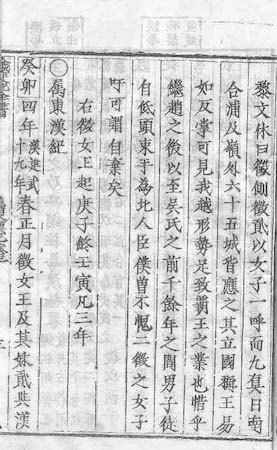 黎文休曰徵側徵貳以女子一呼而九真日南
合浦及嶺外六十五城皆應之其立國稱王易
如反掌可見我越形勢足致霸王之業也惜乎
繼趙之後以至吳氏之前千餘年之間男子徒
自低頭束手為北人臣僕曾不愧二徵之女子
吁可謂自棄矣
右徵女王起庚子終壬寅凡三年
〇屬東漢紀
癸卯四年漢建武十九年春正月徵女王及其妹貳與漢